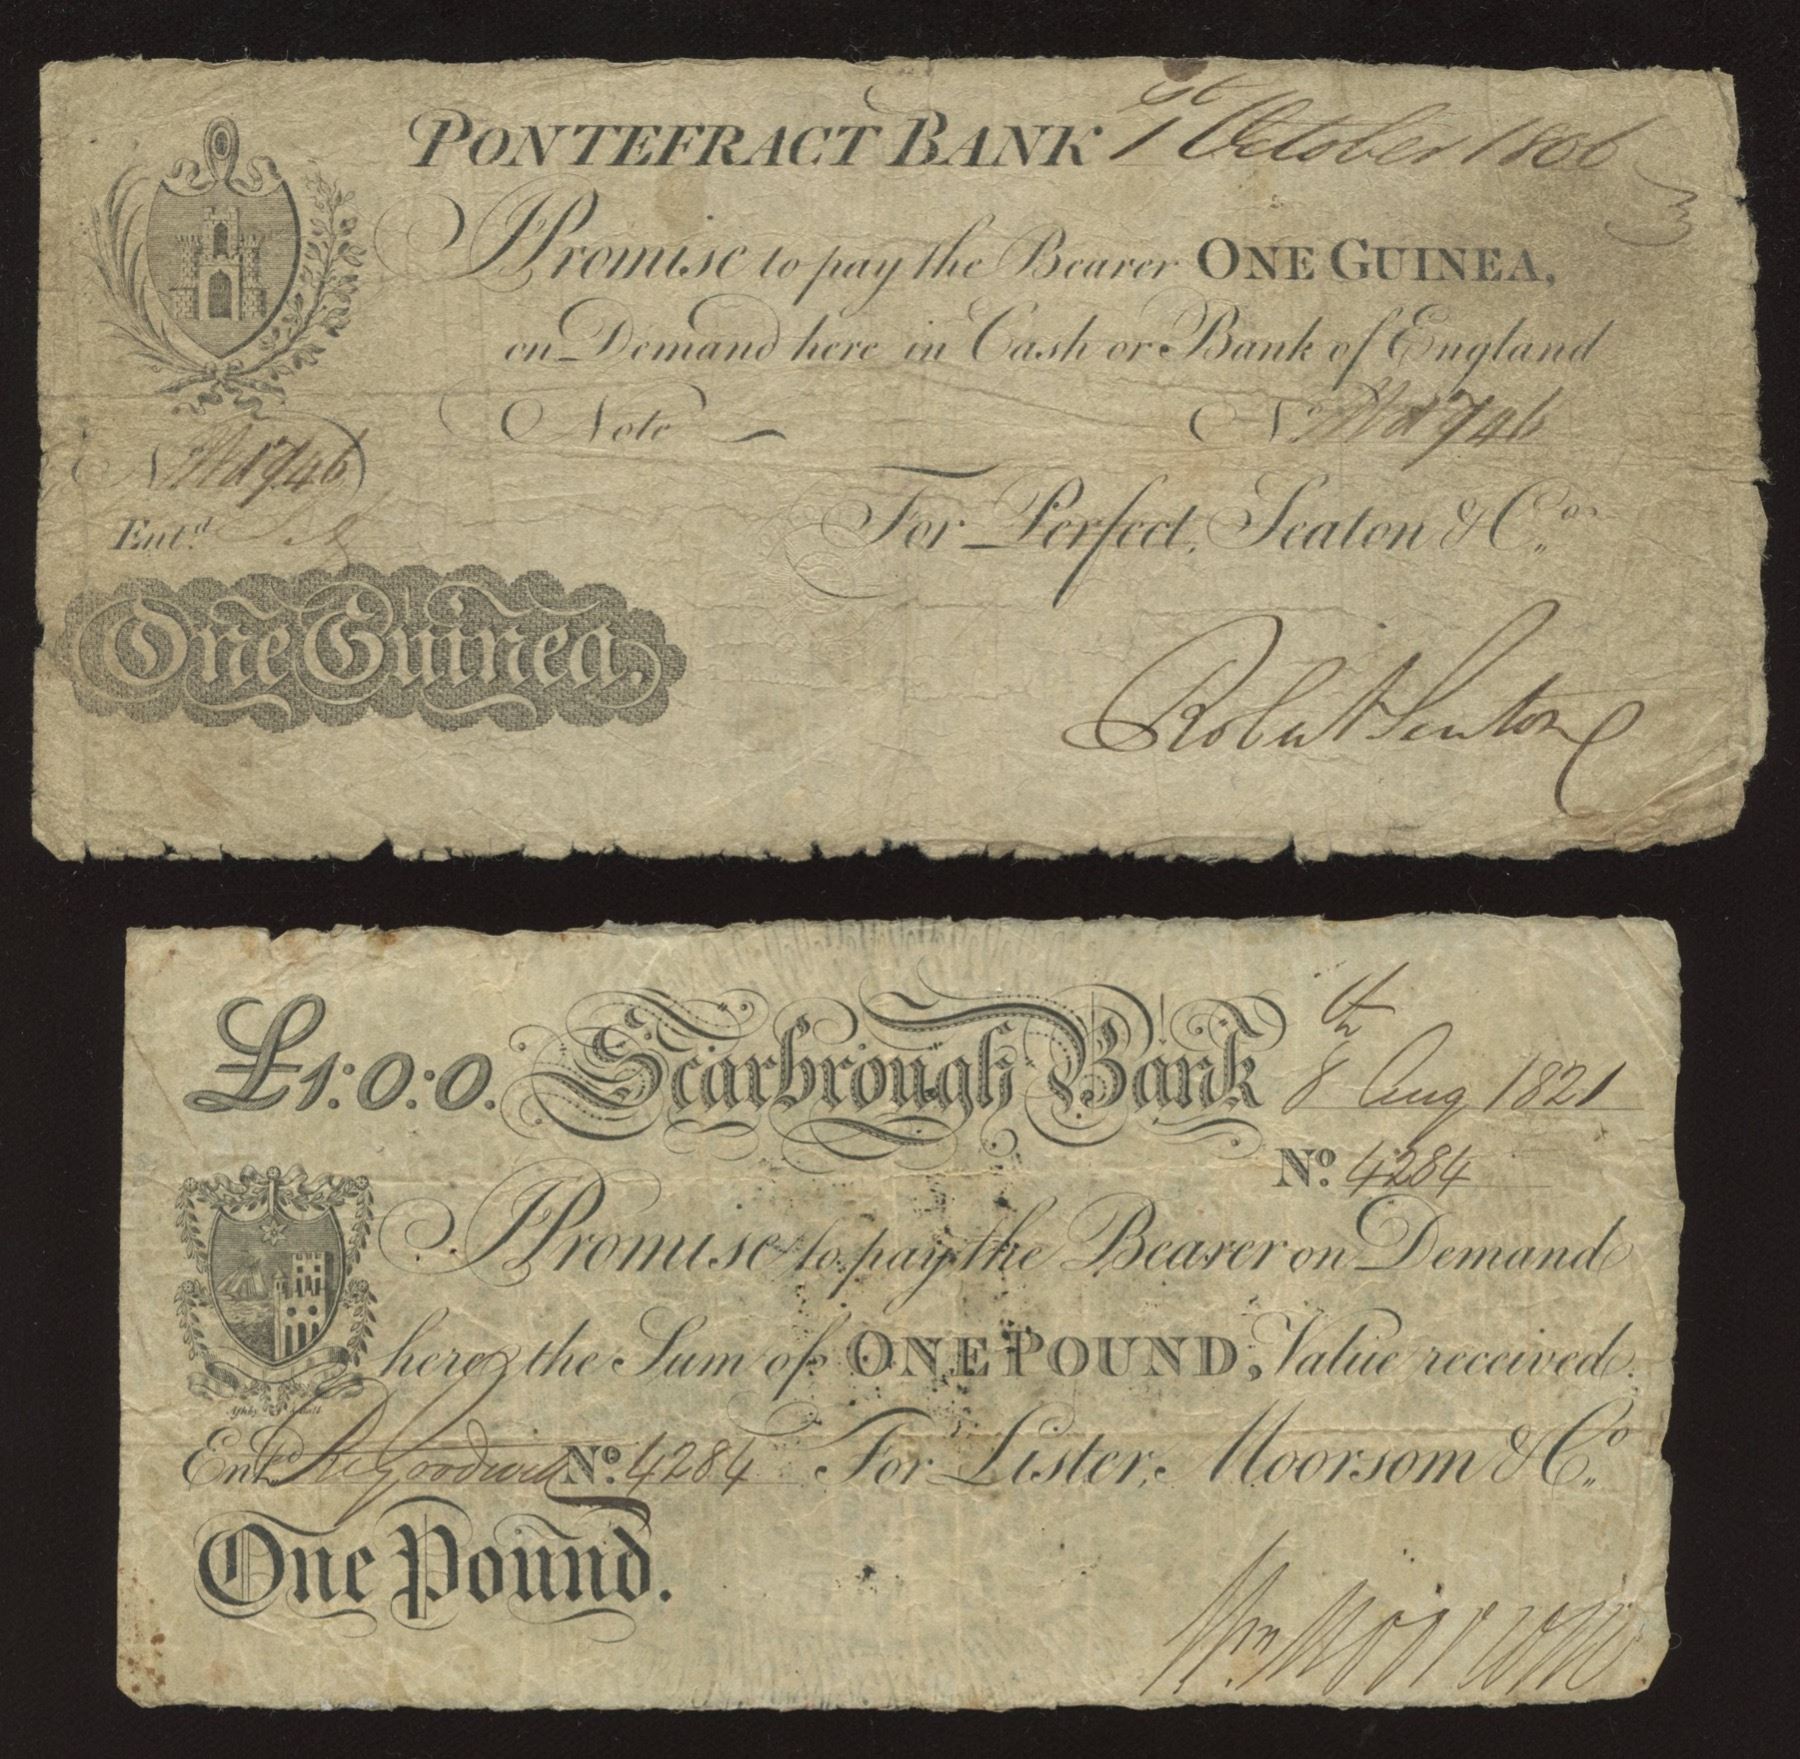 PONTEFRACT BANK 1st October 1806
I Promise to pay the Bearer ONE GUINEA,
on Demand here in Cash or Bank of England
Note No 746
No 746
For Perfect, Seaton & Co.
Ent.d
One Guinea.
Robert Seaton
£1:0:0. Scarbrough Bank 8th Aug 1821
No. 4284
I Promise to pay the Bearer on Demand
here the Sum of ONE POUND, Value received.
Ent.d R Goodwill No. 4284 For Lister, Moorsom & Co.
One Pound.
Wm Moorsom